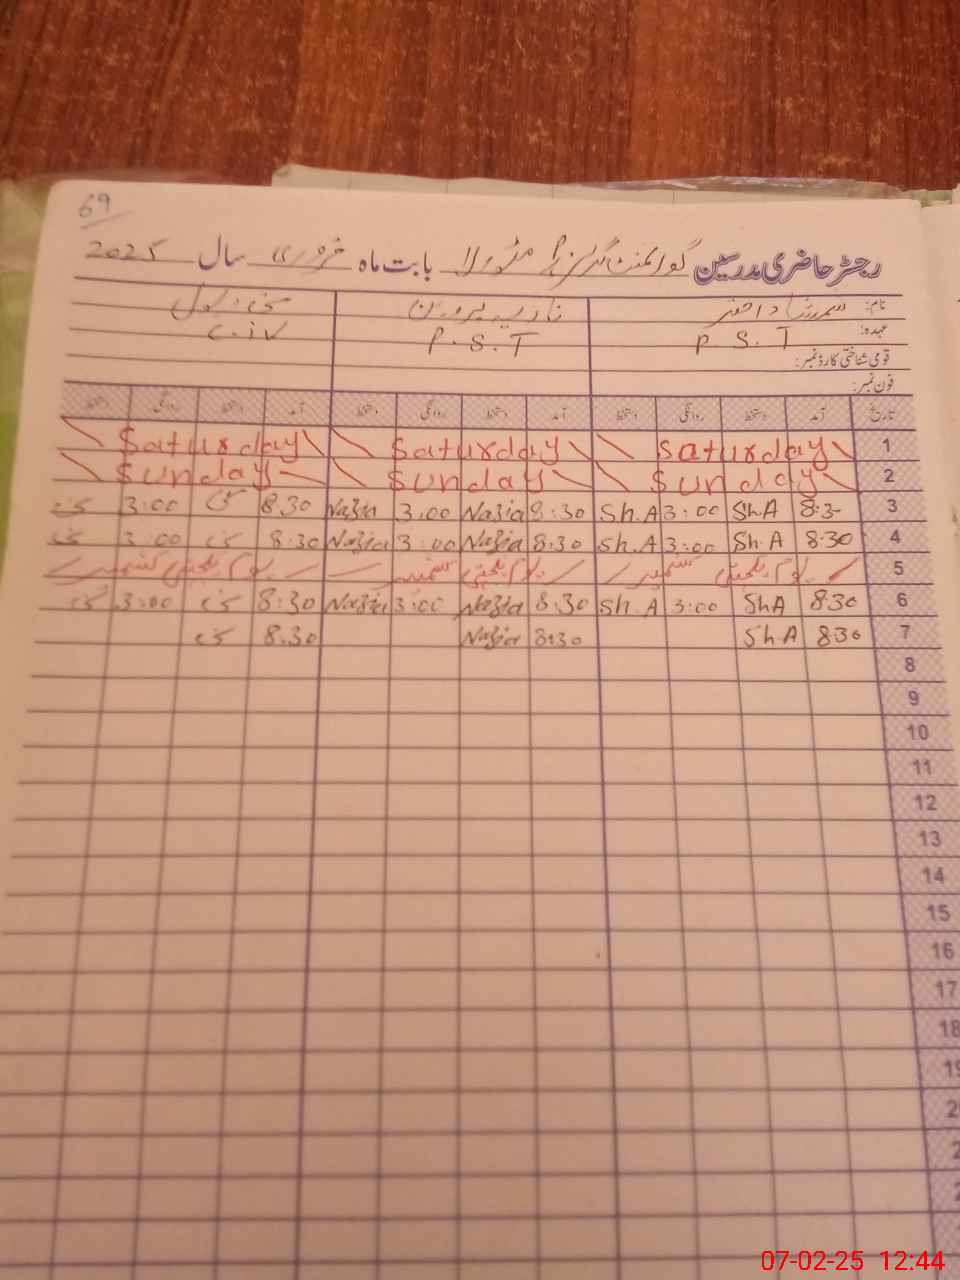 69
رجسٹر حاضری مدرسین گورنمنٹ گرلز بابت ماہ فروری سال 2025
نام:
عہدہ: P.S.T P.S.T C.iv
قومی شناختی کارڈ نمبر:
فون نمبر:
تاریخ آمد دستخط روانگی دستخط آمد دستخط روانگی دستخط آمد دستخط روانگی دستخط
1 Saturday Saturday Saturday
2 Sunday Sunday Sunday
3 8:3- Sh.A 3:00 Sh.A 8:30 Nazia 3:00 Nazia 8.30 3:00
4 8:30 Sh.A 3:00 Sh.A 8:30 Nazia 3:00 Nazia 8:30 3:00
5 یوم یکجہتی کشمیر یوم یکجہتی کشمیر یوم یکجہتی کشمیر
6 8:30 ShA 3:00 Sh.A 8:30 Nazia 3:00 Nazia 8:30 3:00
7 8:30 Sh.A 8:30 Nazia 8.30
8
9
10
11
12
13
14
15
16
17
18
07-02-25 12:44